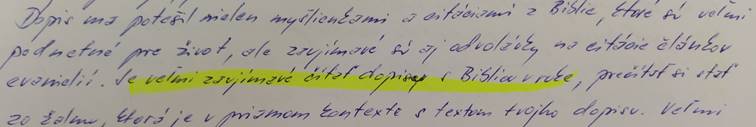 Dopis ma potešil nielen myšlienkami a citáciami z Biblie, ktoré sú veľmi
podnetné pre život, ale zaujímavé sú aj odvolávky na citácie článkov
evanjelií. Je veľmi zaujímavé čítať dopisy s Bibliou v ruke, prečítať si stať
zo žalmu, ktorá je v priamom kontexte s textom tvojho dopisu. Veľmi